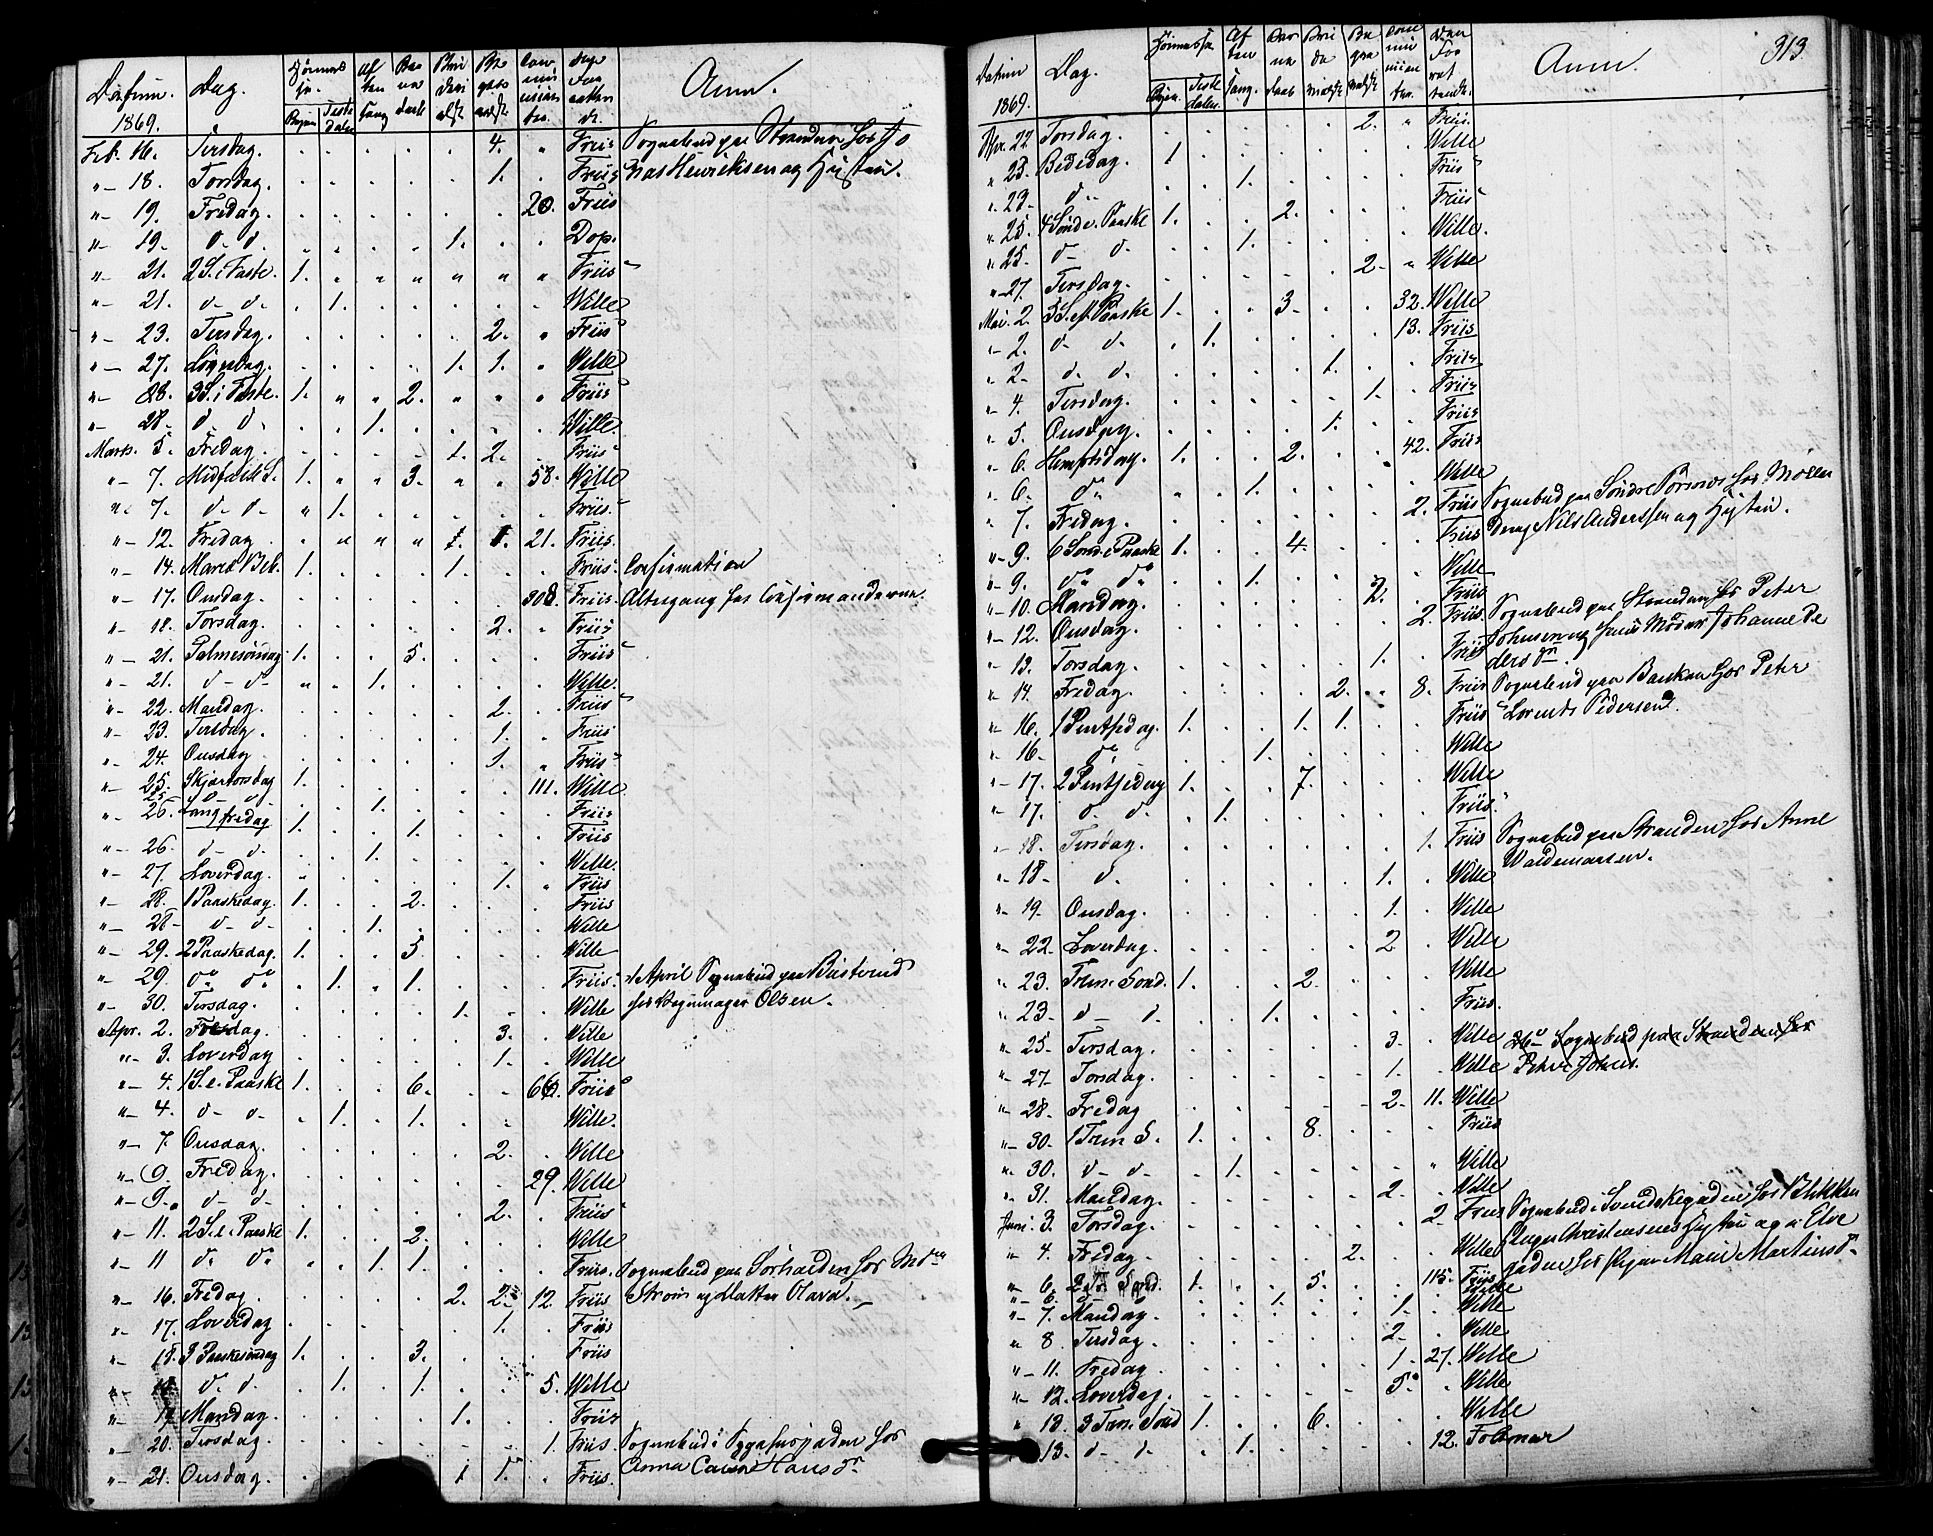 Datum. 1869. Dag. Byen Anm.
Feb. 16. Tirsdag. . . . . . 4. " Friis Sognebud paa Stranden hos Jo
"- 18. Torsdag. . . . . . 1. . Friis Henriksen og Hustru.
"- 19. Fredag. . . . . . . 20. Friis
"- 19. d. d. " . . . 1. . . Dop.
"- 21. 2 S. i Faste. 1. " " " " " " Friis
"- 21. d. d. . 1. . . . . . Wille
"- 23. Tirsdag. . . . . . 2. " Friis
"- 27. Løverdag. . . . . 1. 1. " Wille
"- 28. 3 S. i Faste. 1. " " 2. " " " Friis
"- 28. d. d. . . 1. . . . . Wille.
Marts. 5. Fredag. . . . . 1. 2. . Friis
"- 7. Midfaste S. 1. " " 3. " . 58. Wille
"- 7. d. d. " 1. . . . . . Friis.
"- 12. Fredag. . " " " 1. 1. 21. Friis.
"- 14. Mariæ Beb. 1. . . . 1. . . Friis. Confirmation
"- 17. Onsdag. . . . . . . 308. Friis. Altergang for Confirmanderne
"- 18. Torsdag. . . . . . 2. " Friis
"- 21. Palmesøndag 1. . . 5. . . . Friis
"- 21. d- d- " . 1. . . . . Wille.
"- 22. Mandag. . . . . . 2. . Friis
"- 23. Tirsdag. . . . . . 1. . Friis
"- 24. Onsdag . . . . . 1. " Friis
"- 25. Skjærtorsdag 1. . . . . . 111. Wille
25 d- d- . . 1. . . . . Friis
"- 26. Langfredag 1. . . 1. . . . Friis
"- 26. d- d. . . 1. . . . . Wille.
"- 27. Løverdag. . . . . . 1. " Friis
"- 28. 1 Paaskedag. 1. . . 2. . . . Friis
"- 28- d- d- . . 1. . . . . Wille
"- 29. 2 Paaskedag. 1. . . 5. . . . Wille
"- 29. do do . 1. " 1. . . . Friis. 1 April Sognebud paa
"- 30. Tirsdag. . . . . 1. . . Wille hos Olsen.
Apr. 2. Fredag. . . . . . 3. . Wille
"- 3. Løverdag . . . . . 1. . Wille
"- 4. 1 S. e. Paaske 1. . . 6. . . 66. Friis
"- 4. d- d- . 1. . 1. . . . Wille.
"- 7. Onsdag. . . . . . 2. . Wille
"- 9. Fredag. . . . . . . 29. Wille
"- 9. d- d- . . . . . 2. . Friis
"- 11. 2 S. e. Paaske 1. . . 2. . . . Wille
"- 11 d. d. " . 1. 1. . . . Friis. Sognebud paa hos
"- 16. Fredag . . . . 2. 2. 12 Friis Strøm og Datter Olava.
"- 17. Løverdag . . . . . 1. . Friis
"- 18. 3 Paaskesøndag 1. . . 3. . . . Friis
"- 18. d. d. . 1. . 1. . . 5. Wille
"- 19. Mandag. . . . . 1. . . Friis
"- 20. Tirsdag. . . . . . . 1. Friis Sognebud i Sygehusgaden hos
"- 21. Onsdag. . . . . 1 1. . Friis. Anna Hansd.
Datum 1869. Dag. Byen. Anm. 313.
Apr. 22. Torsdag. . . . . . 2. " Friis.
" 23. Bededag. 1 . . . . . . Wille
". 23. d. . . 1. . . . . Friis
"- 25. 4 Sønd e. Paaske 1. . . 2. . . . Friis
"- 25. d- d. . . 1. . . . . Wille.
"- 27. Tirsdag. . . . . . 2. " Wille
Mai. 2. 3 S. ef. Paaske 1. . . 3. . . 32. Wille
"- 2. d. d. . 1. . . . . 13. Friis
"- 2. d. d. . . . . 1. . . Friis
"- 4. Tirsdag. . . . . . 1. . Friis
"- 5. Onsdag. . . . . 1. . . Friis
"- 6. Himfartsdag. 1. . . 2. . . 42. Friis
"- 6. d " . 1. . . . . Wille
" 7. Fredag. . . . . . . 2. Friis Sognebud paa Søndre hos
"- 9. 6 Sønd e Paaske 1. . . 4. . . . Friis Nils Anderssen og Hustru.
"- 9. do do . . 1. . . . . Wille
"- 10. Mandag. . . . . . 2. . Friis
"- 12. Onsdag. . . . . . . 2. Friis Sognebud paa Stranden hos Peter
"- 13. Torsdag. . . . . . 1. . Friis Johnsen og hans Moder Johanne Pe
dersd.
"- 14. Fredag. . . . . 2. " 8. Friis Sognebud paa Bakken hos Peter
"- 16. 1 Pintsedag. 1. . . 1. 1. . . Friis Lorents Pedersen.
"- 16. d. . . 1. . . . . Wille
"- 17. 2 Pintsedag 1. . . 7. . . . Wille
"- 17. d. d. . 1. . . . . . Friis.
"- 18. Tirsdag. . . . . . . 1. Friis Sognebud paa Stranden hos Anne
"- 18- d. . . . . . 1. . Wille Waldemarsen.
"- 19. Onsdag. . . . . . 1. . Wille
"- 22. Løverdag. . . . . . 2 . Wille
"- 23. Trin. Sønd. 1. . . 2. . . . Wille
"- 23. d- d. . . 1. . . . . Friis.
"- 25. Tirsdag. . . . . . 3. . Wille Sognebud paa Stranden hos
"- 27. Torsdag. . . . . . 1. . Wille Peter Johns.
"- 28. Fredag . . . . . 2. 11. Wille
"- 30. 1 Trin S. 1. . . 8. . . . Friis
"- 30. d- d- . 1. . . . . " Wille
"- 31. Mandag. . . . . . 2. . Wille
Juni. 3. Torsdag. . . . . . . 2 Friis Sognebud i hos Blikken
"- 4. Fredag. . . . . 2. . . Wille slager Christensens Hustru og i Elve
"- 6. 2 Tr. Sønd. 1. . . 5. . . 115. Friis gaden hos Pigen Marie Martinsd.
"- 6. d . . 1. . . . . Wille
"- 7. Mandag. . . . . . 1. . Wille
" 8. Tirsdag. . . . . . 2. . Wille
"- 11. Fredag. . . . . . 1. 27. Wille
"- 12. Løverdag. . . . . . 5. . Wille
" 13. 3 Trin. Sønd 1. . . 6. . . . Wille
- 13. d- d. . . 1. . . . 12. Folkmar